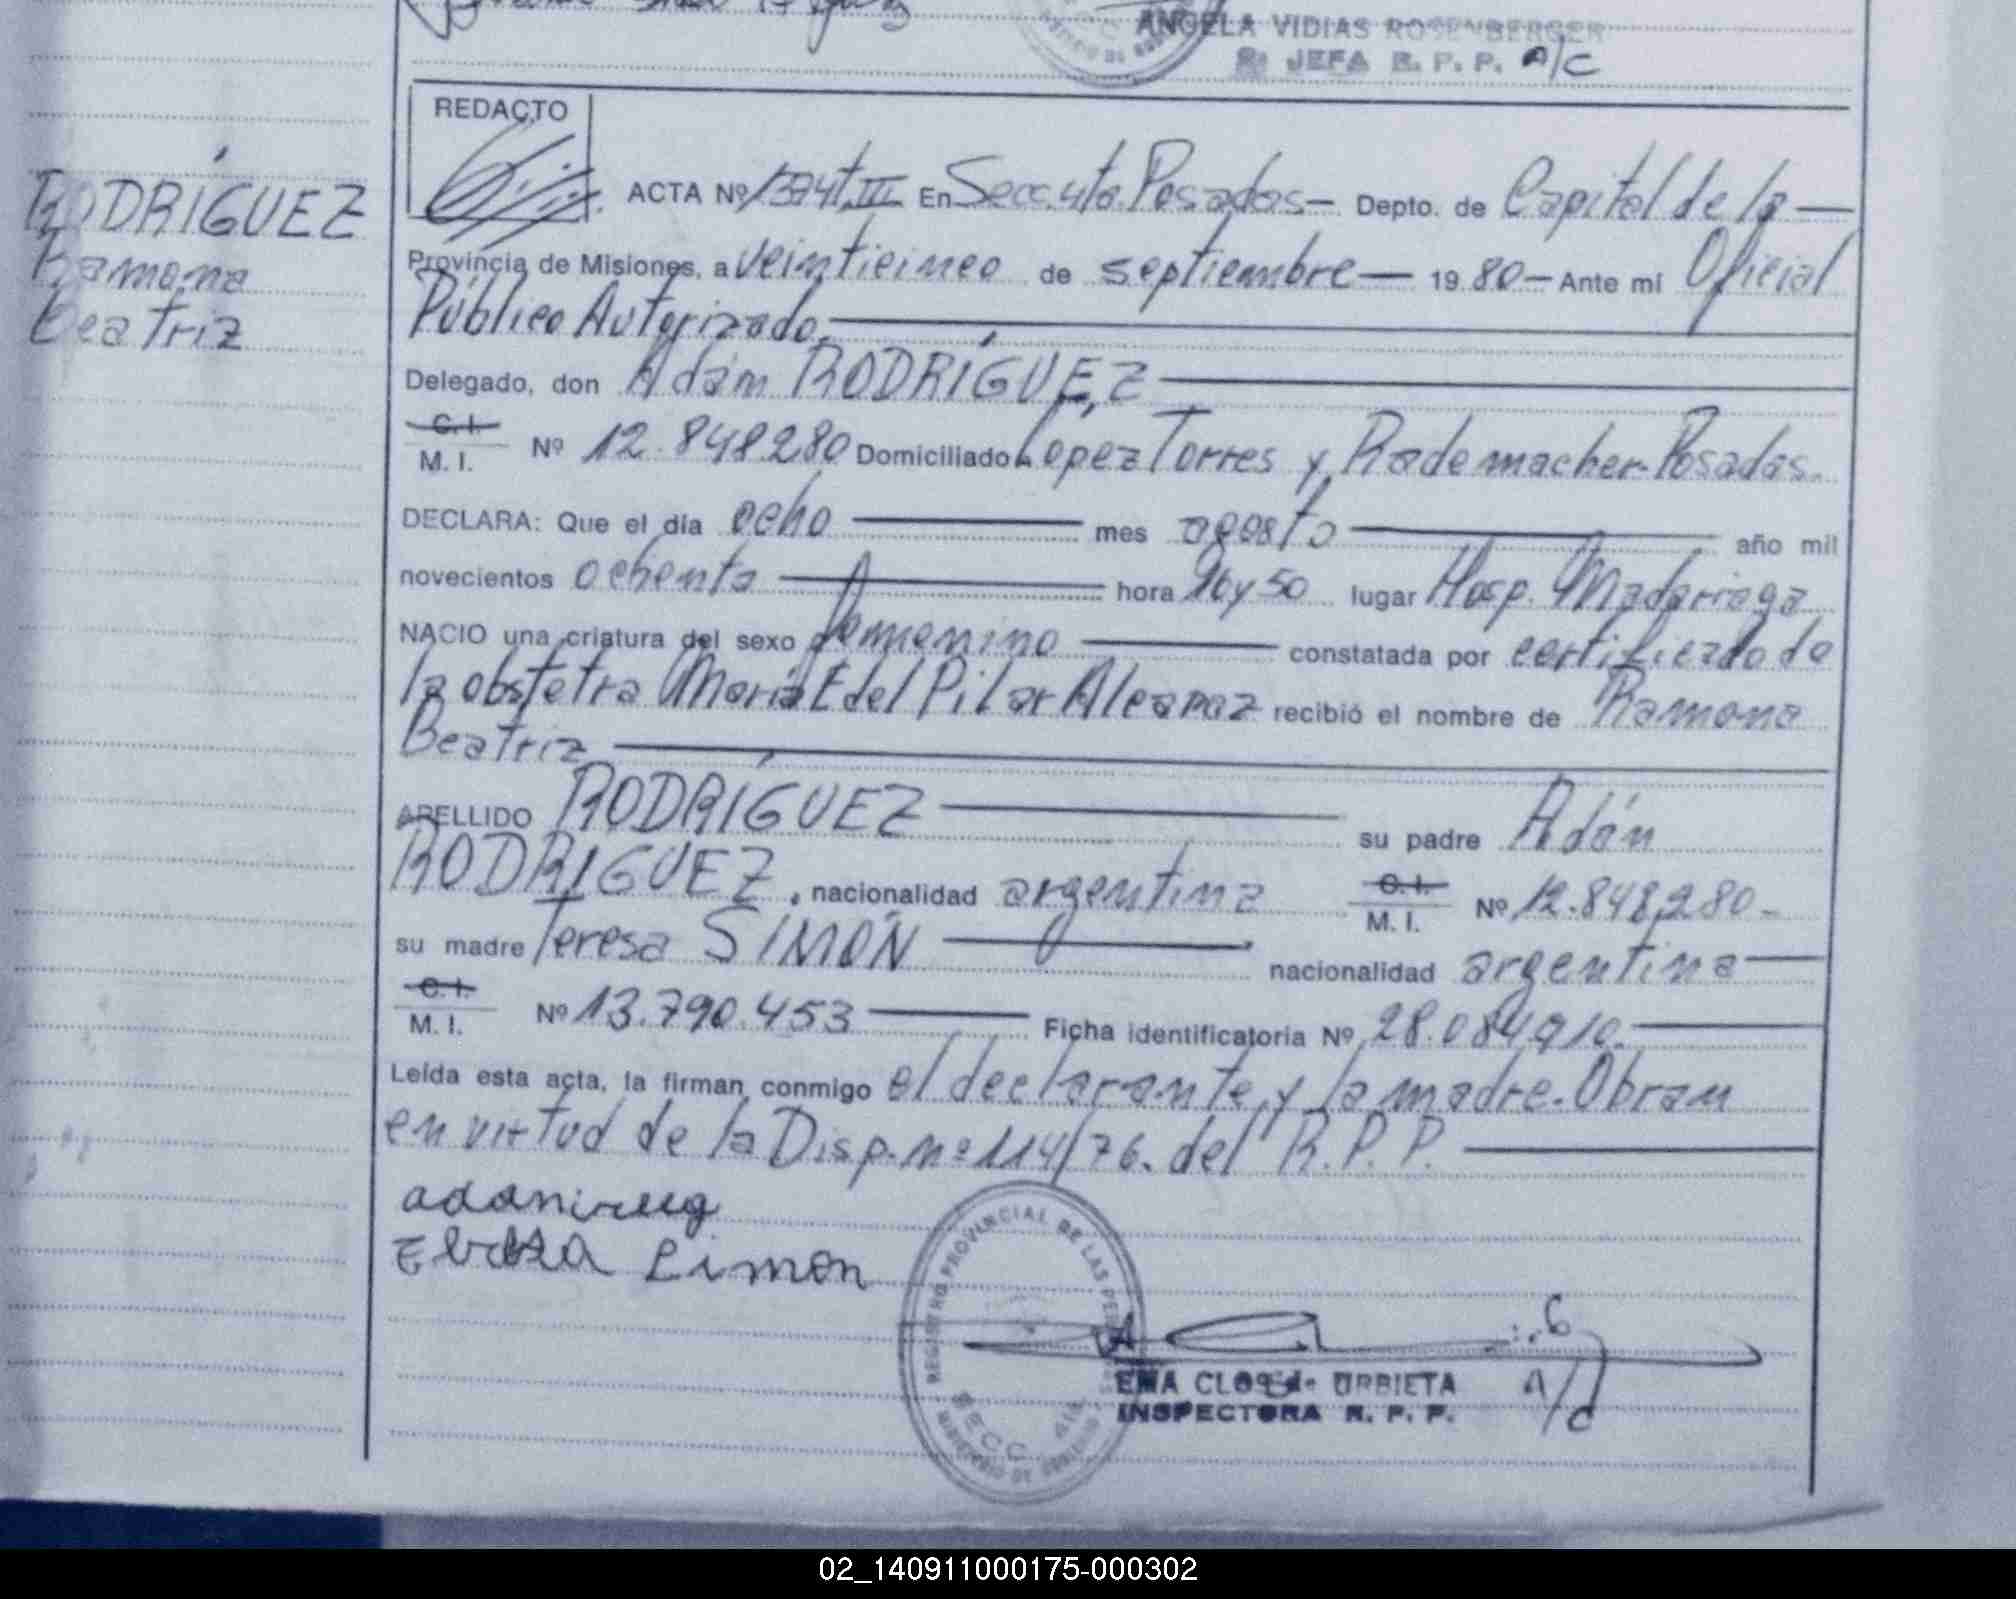 ANGELA VIDIAS ROSENBERGER
JEFA R. P. P. A/C
RODRÍGUEZ
Ramona
Beatriz
REDACTO
ACTA Nº 1374 t. III En Secc. 4ta. Posadas- Depto. de Capital de la
Provincia de Misiones, a veinticinco de septiembre 19 80- Ante mi Oficial
Público Autorizado.
Delegado, don Adám RODRÍGUEZ
C. I.
M. I. Nº 12.848280 Domiciliado López Torres y Rademacher-Posadas.
DECLARA: Que el día ocho mes agosto año mil
novecientos ochenta hora y 50 lugar Hosp. Madariaga
NACIO una criatura del sexo femenino constatada por certificado de
la obstetra María E del Pilar Alcaraz recibió el nombre de Ramona
Beatriz
APELLIDO RODRÍGUEZ su padre Adán
RODRIGUEZ, nacionalidad argentina C. I. M. I. Nº 12.848.280-
su madre Teresa SIMÓN nacionalidad argentina
C. I.
M. I. Nº 13.790.453 Ficha identificatoria Nº 28.084.910.
Leída esta acta, la firman conmigo el declarante y la madre. Obran
en virtud de la Disp. nº 114/76. del R.P.P.
Limon
REGISTRO PROVINCIAL DE LAS PERSONAS
SECC. 4ta
EMA CLOS de URBIETA A/C
INSPECTORA R. P. P.
02_140911000175-000302